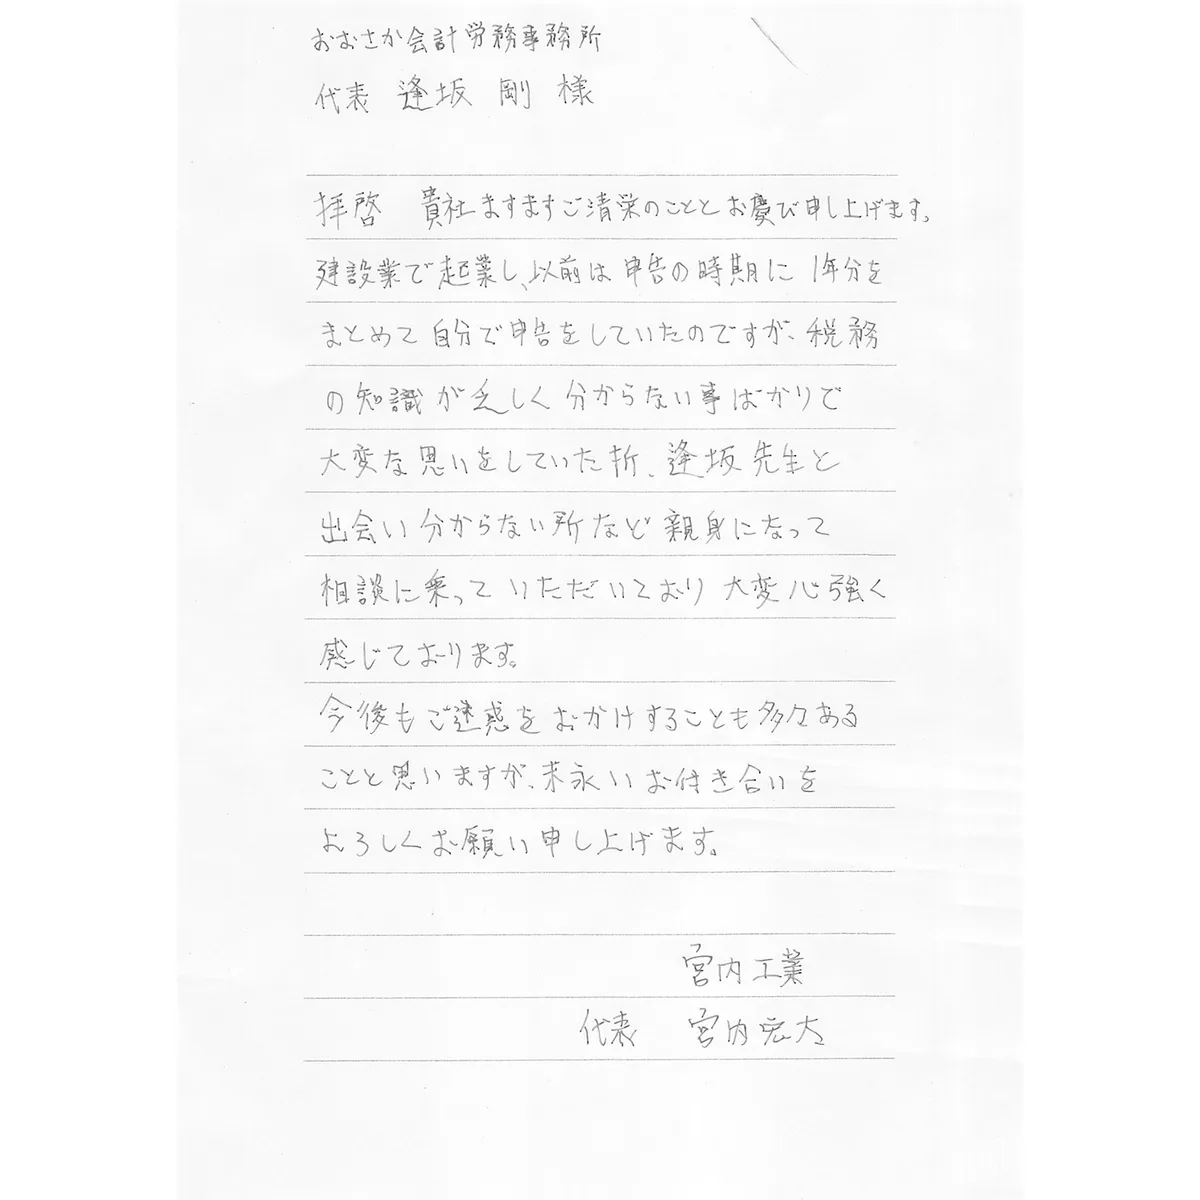 おおさか会計労務事務所
代表 逢坂 剛 様
拝啓 貴社ますますご清栄のこととお慶び申し上げます。
建設業で起業し、以前は申告の時期に1年分を
まとめて自分で申告をしていたのですが、税務
の知識が乏しく分からない事ばかりで
大変な思いをしていた折、逢坂先生と
出会い分からない所など親身になって
相談に乗っていただいており大変心強く
感じております。
今後もご迷惑をおかけすることも多々ある
ことと思いますが、末永いお付き合いを
よろしくお願い申し上げます。
宮内工業
代表 宮内宏大